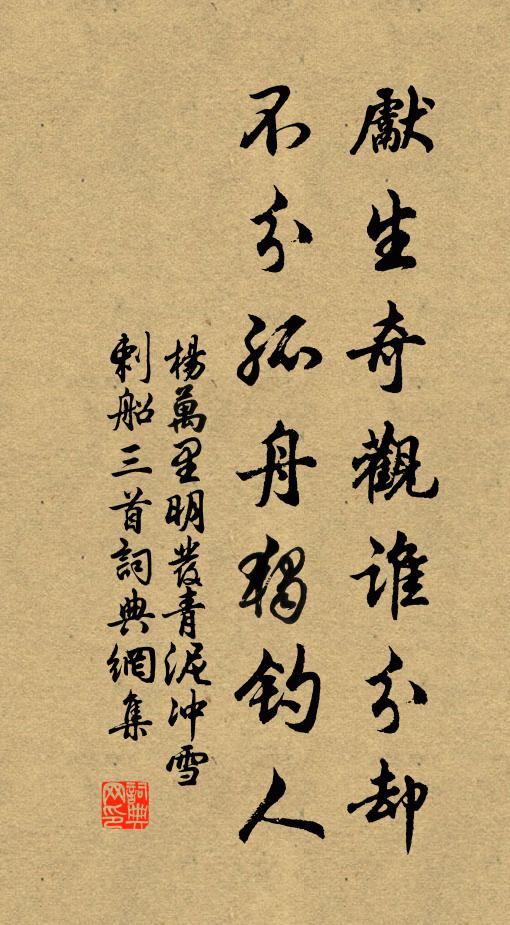 獻生奇觀誰分却
不分孤舟獨釣人
楊萬里明發青泥冲雪
刺船三首詞典網集
詞典
网印